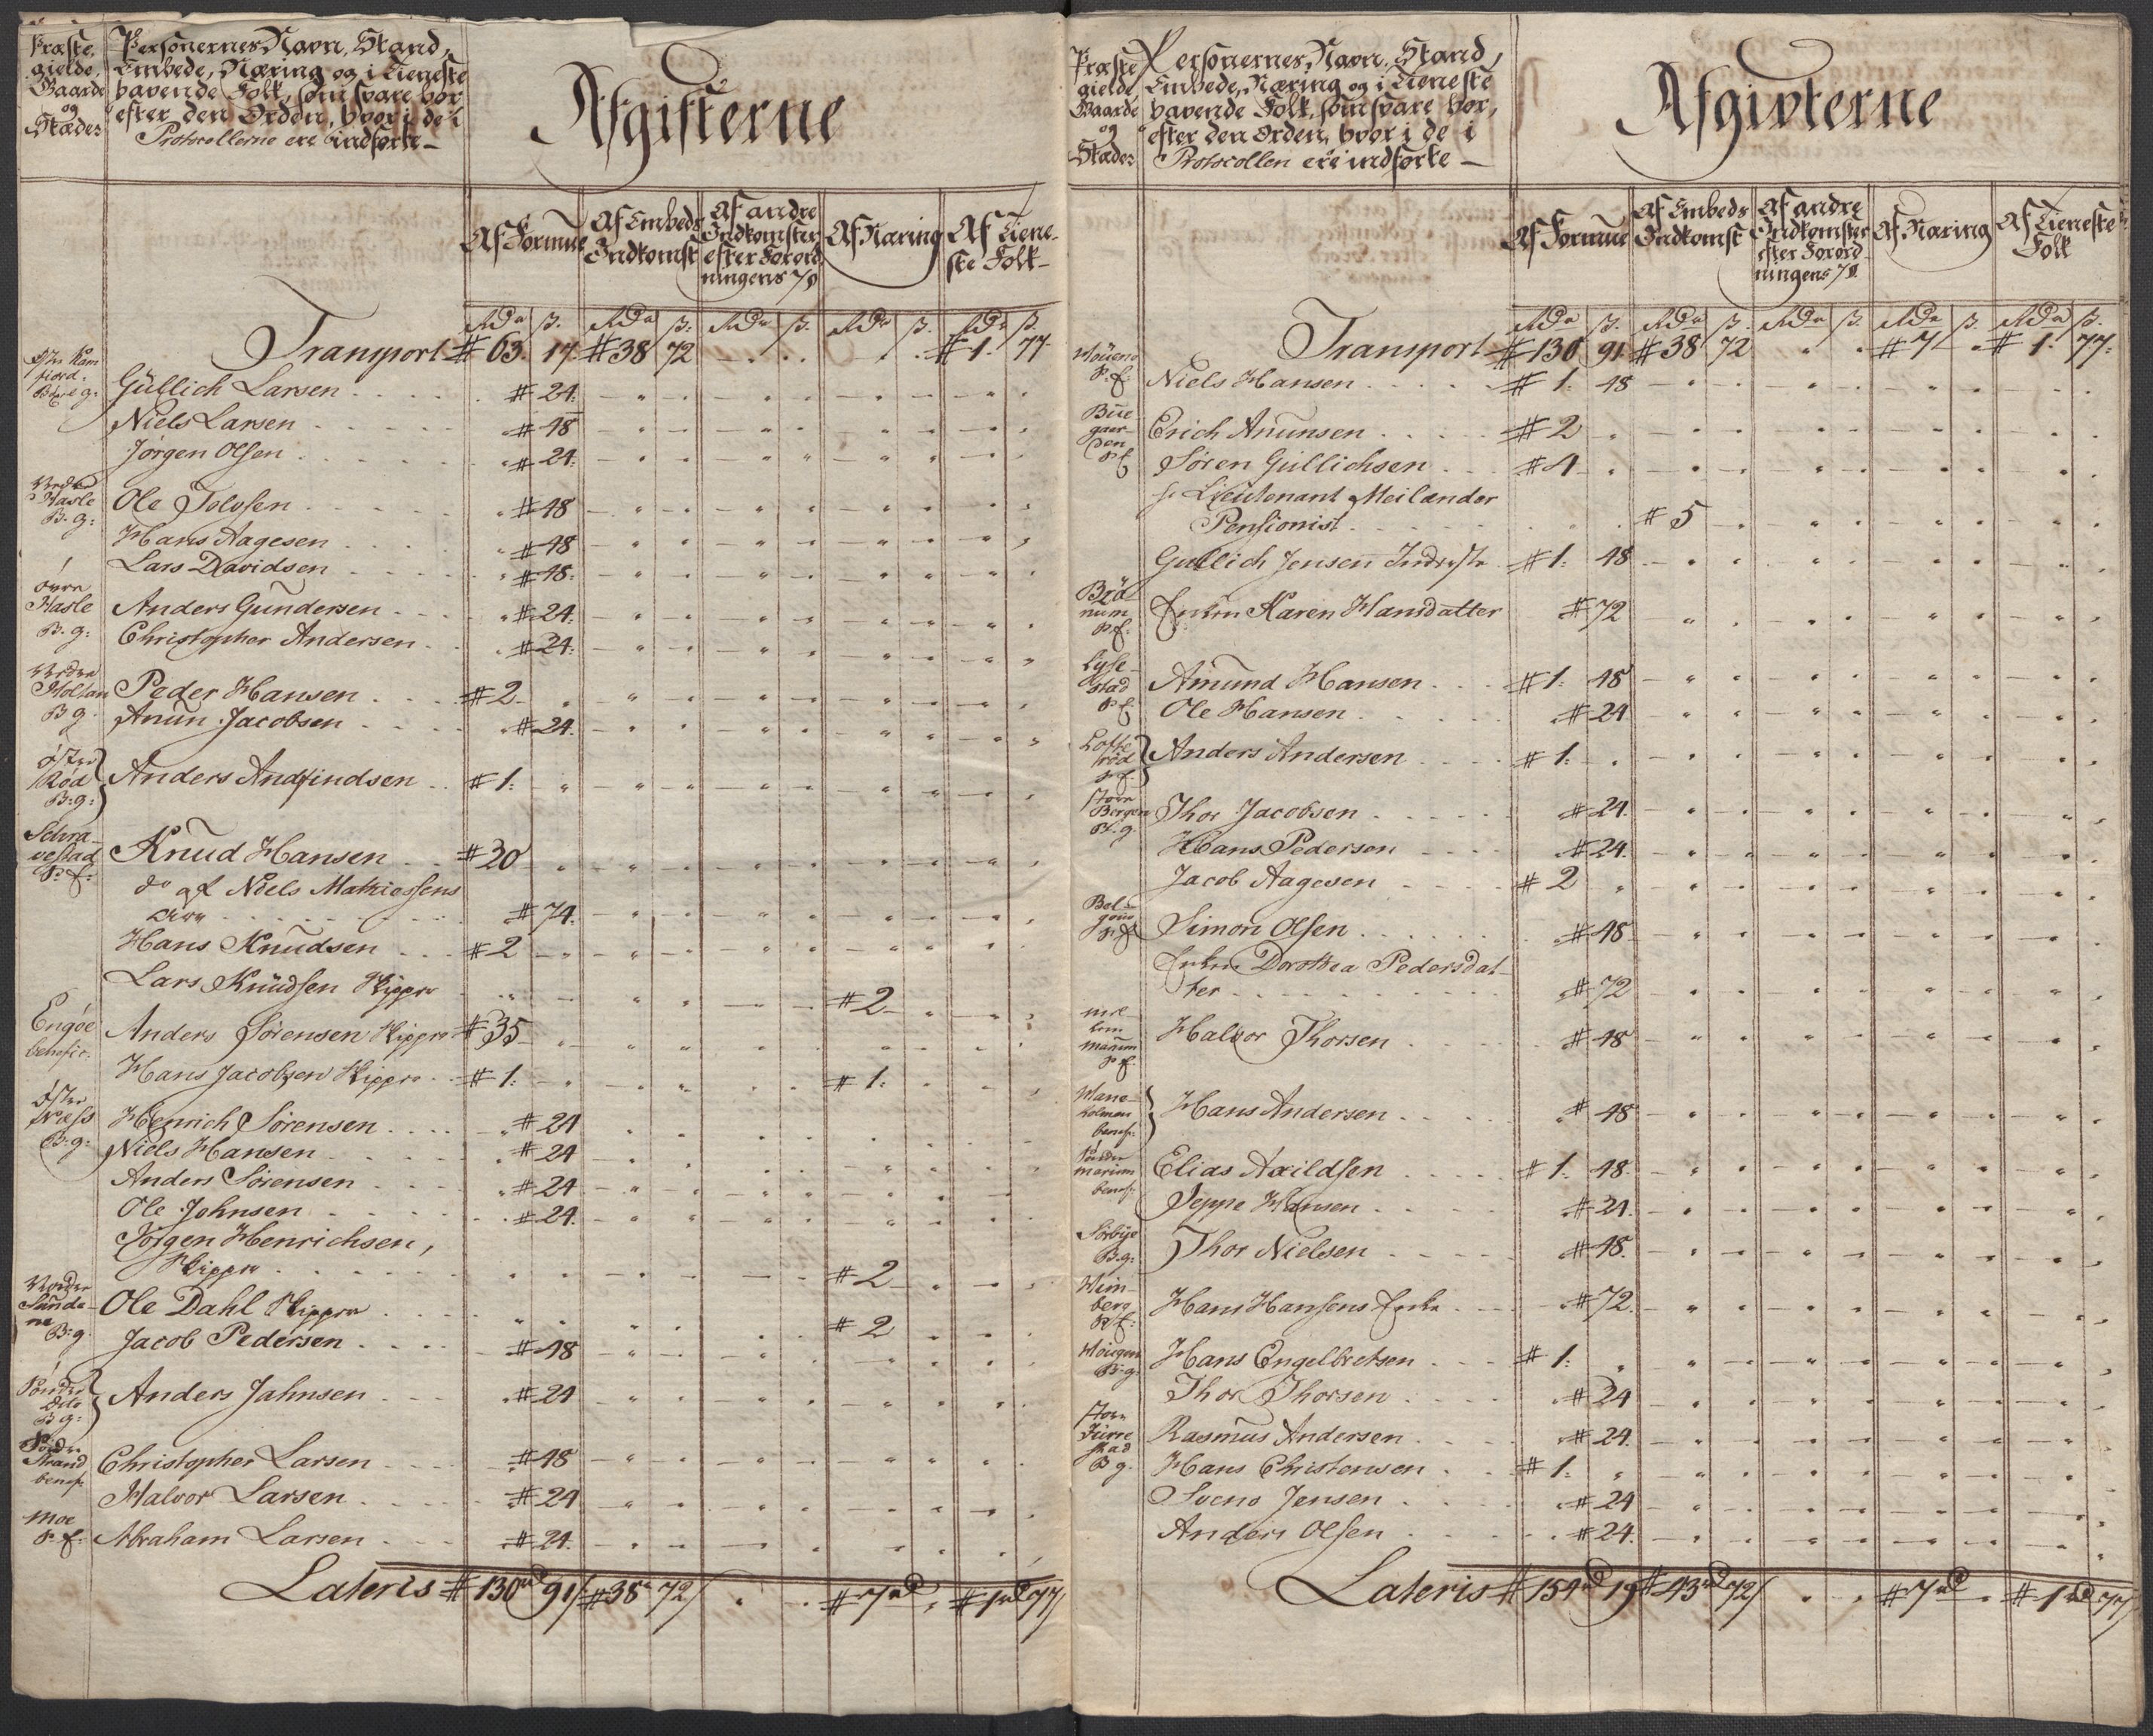 Præste
gielde,
Gaarde
og
Stæder
Personernes Navn, Stand,
Embede, Næring og i Tieneste
havende Folk, som svare hør
efter den Orden, hvor i de i
Protocollerne ere indførte —
Afgifterne
Af Formue
Af Embeds Indkomst
Af andre Indkomster efter Forordningens 7 §
Af Næring
Af Tieneste Folk
Rdr ß. Rdr ß. Rdr ß. Rdr ß. Rdr ß.
Transport # 63. 17. # 38 72 # 1. 77
Güllich Larsen # 24.
Niels Larsen # 48
Jørgen Olsen # 24.
Hasle B. g: Ole Tolofsen # 48
Hans Aagesen # 48
Lars Davidsen # 48.
øvre Hasle B. g: Anders Gundersen # 24.
Christopher Andersen # 24.
Holtan B g. Peder Hansen # 2
Anun Jacobsen # 24.
øster Rød B: g: Anders Andfindsen # 1.
P. f: Knud Hansen # 20
do af Niels Mathiessens
Arv # 74.
Hans Knudsen # 2
Lars Knudsen Skipper # 2
Engøe benefic: Anders Sørensen Skipper # 35
Hans Jacobsen Skipper # 1. # 1.
øster Næss B: g: Henrich Sørensen # 24
Niels Hansen # 24
Anders Sørensen # 24
Ole Johnsen # 24.
Jørgen Henrichsen,
Skipper # 2
Sundene B: g. Ole Dahl Skipper # 2
Jacob Pedersen # 48
B g: Anders Jahnsen # 24
Strand benef: Christopher Larsen # 48
Halvor Larsen # 24
Moe P. f: Abraham Larsen # 24.
Lateris # 130 rd 91 / # 38 72 / # 7 rd # 1 rd 77 /
Præste
gielde
Gaarde
og
Stæder
Personernes Navn, Stand,
Embede, Næring og i Tieneste
havende Folk, som svare hør,
efter den Orden, hvor i de i
Protocollen ere indførte —
Afgivterne
Af Formue
Af Embeds Indkomst
Af andre Indkomster efter Forordningens 7 §
Af Næring
Af Tieneste Folk
Rdr ß. Rdr ß. Rdr ß. Rdr ß. Rdr ß.
Transport # 130 91 # 38 72 # 7 # 1. 77.
P. f: Niels Hansen # 1. 48
Erich Anunsen # 2
Søren Gullichsen # 4
Hr Lieutenant Meilander
Pensionist # 5
Gullich Jensen # 1. 48
P. f: Enken Karen Hansdatter # 72
Lysestad P f Amund Hansen # 1. 48
Ole Hansen # 24
P. f. Anders Andersen # 1.
Store Bergan B. g. Thor Jacobsen # 24.
Hans Pedersen # 24.
Jacob Aagesen # 2
Simon Olsen # 48
Enken Dorothea Pedersdat-
ter # 72
P f. Halvor Thorsen # 48
benef: Hans Andersen # 48
benef: Elias Axildsen # 1. 48
Jeppe Hansen # 24.
Sørbye B. g: Thor Nielsen # 48.
P. f: Hans Hansens Enke # 72
Hougen B: g. Hans Engelbretsen # 1.
Thor Thorsen # 24
Store B g. Rasmus Andersen # 24.
Hans Christensen # 1.
Svend Jensen # 24
Anders Olsen # 24.
Lateris # 154 rd 19 # 43 rd 72 / # 7 rd # 1 rd 77 /